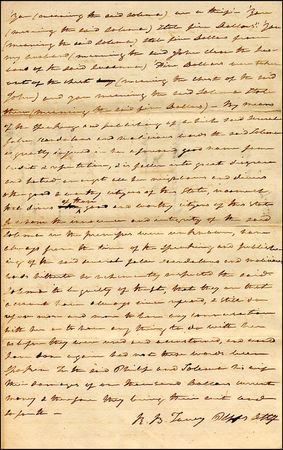 You (meaning the said Salome) are a thief - You
(meaning the said Salome) stole five Dollars." You
(meaning the said Salome) stole five Dollars from
my husband (meaning the said John
husband of the said ) Five Dollars was taken
out of the chest (meaning the chest of the said
John) and you meaning the said Salome stole
them (meaning the said five Dollars) - By means
of the speaking and publishing of which said several
false, scandalous and malicious words the said Salome
is greatly injured in her aforesaid good name fame
credit & reputation, is fallen into great disgrace
and hatred amongst all her neighbours and divers
other good & worthy citizens of this state, insomuch
that divers of those good and worthy citizens of this state
to whom the innocence and integrity of the said
Salome in the premises were unknown, have
always from the time of the speaking and publish-
ing of the said several false scandalous and malicious
words hitherto so vehemently suspected the said
Salome to be guilty of theft, that they on that
account have always since refused, & still do
refuse more and more to have any conversation
with her or to have any thing to do with her
as before they were used and accustomed, and would
have done again had not those words been
spoken To the said Philip and Salome his wife
the damages of one thousand Dollars current
money & therefore they bring their suit and
so forth -
R. B. Taney Plffs Atty